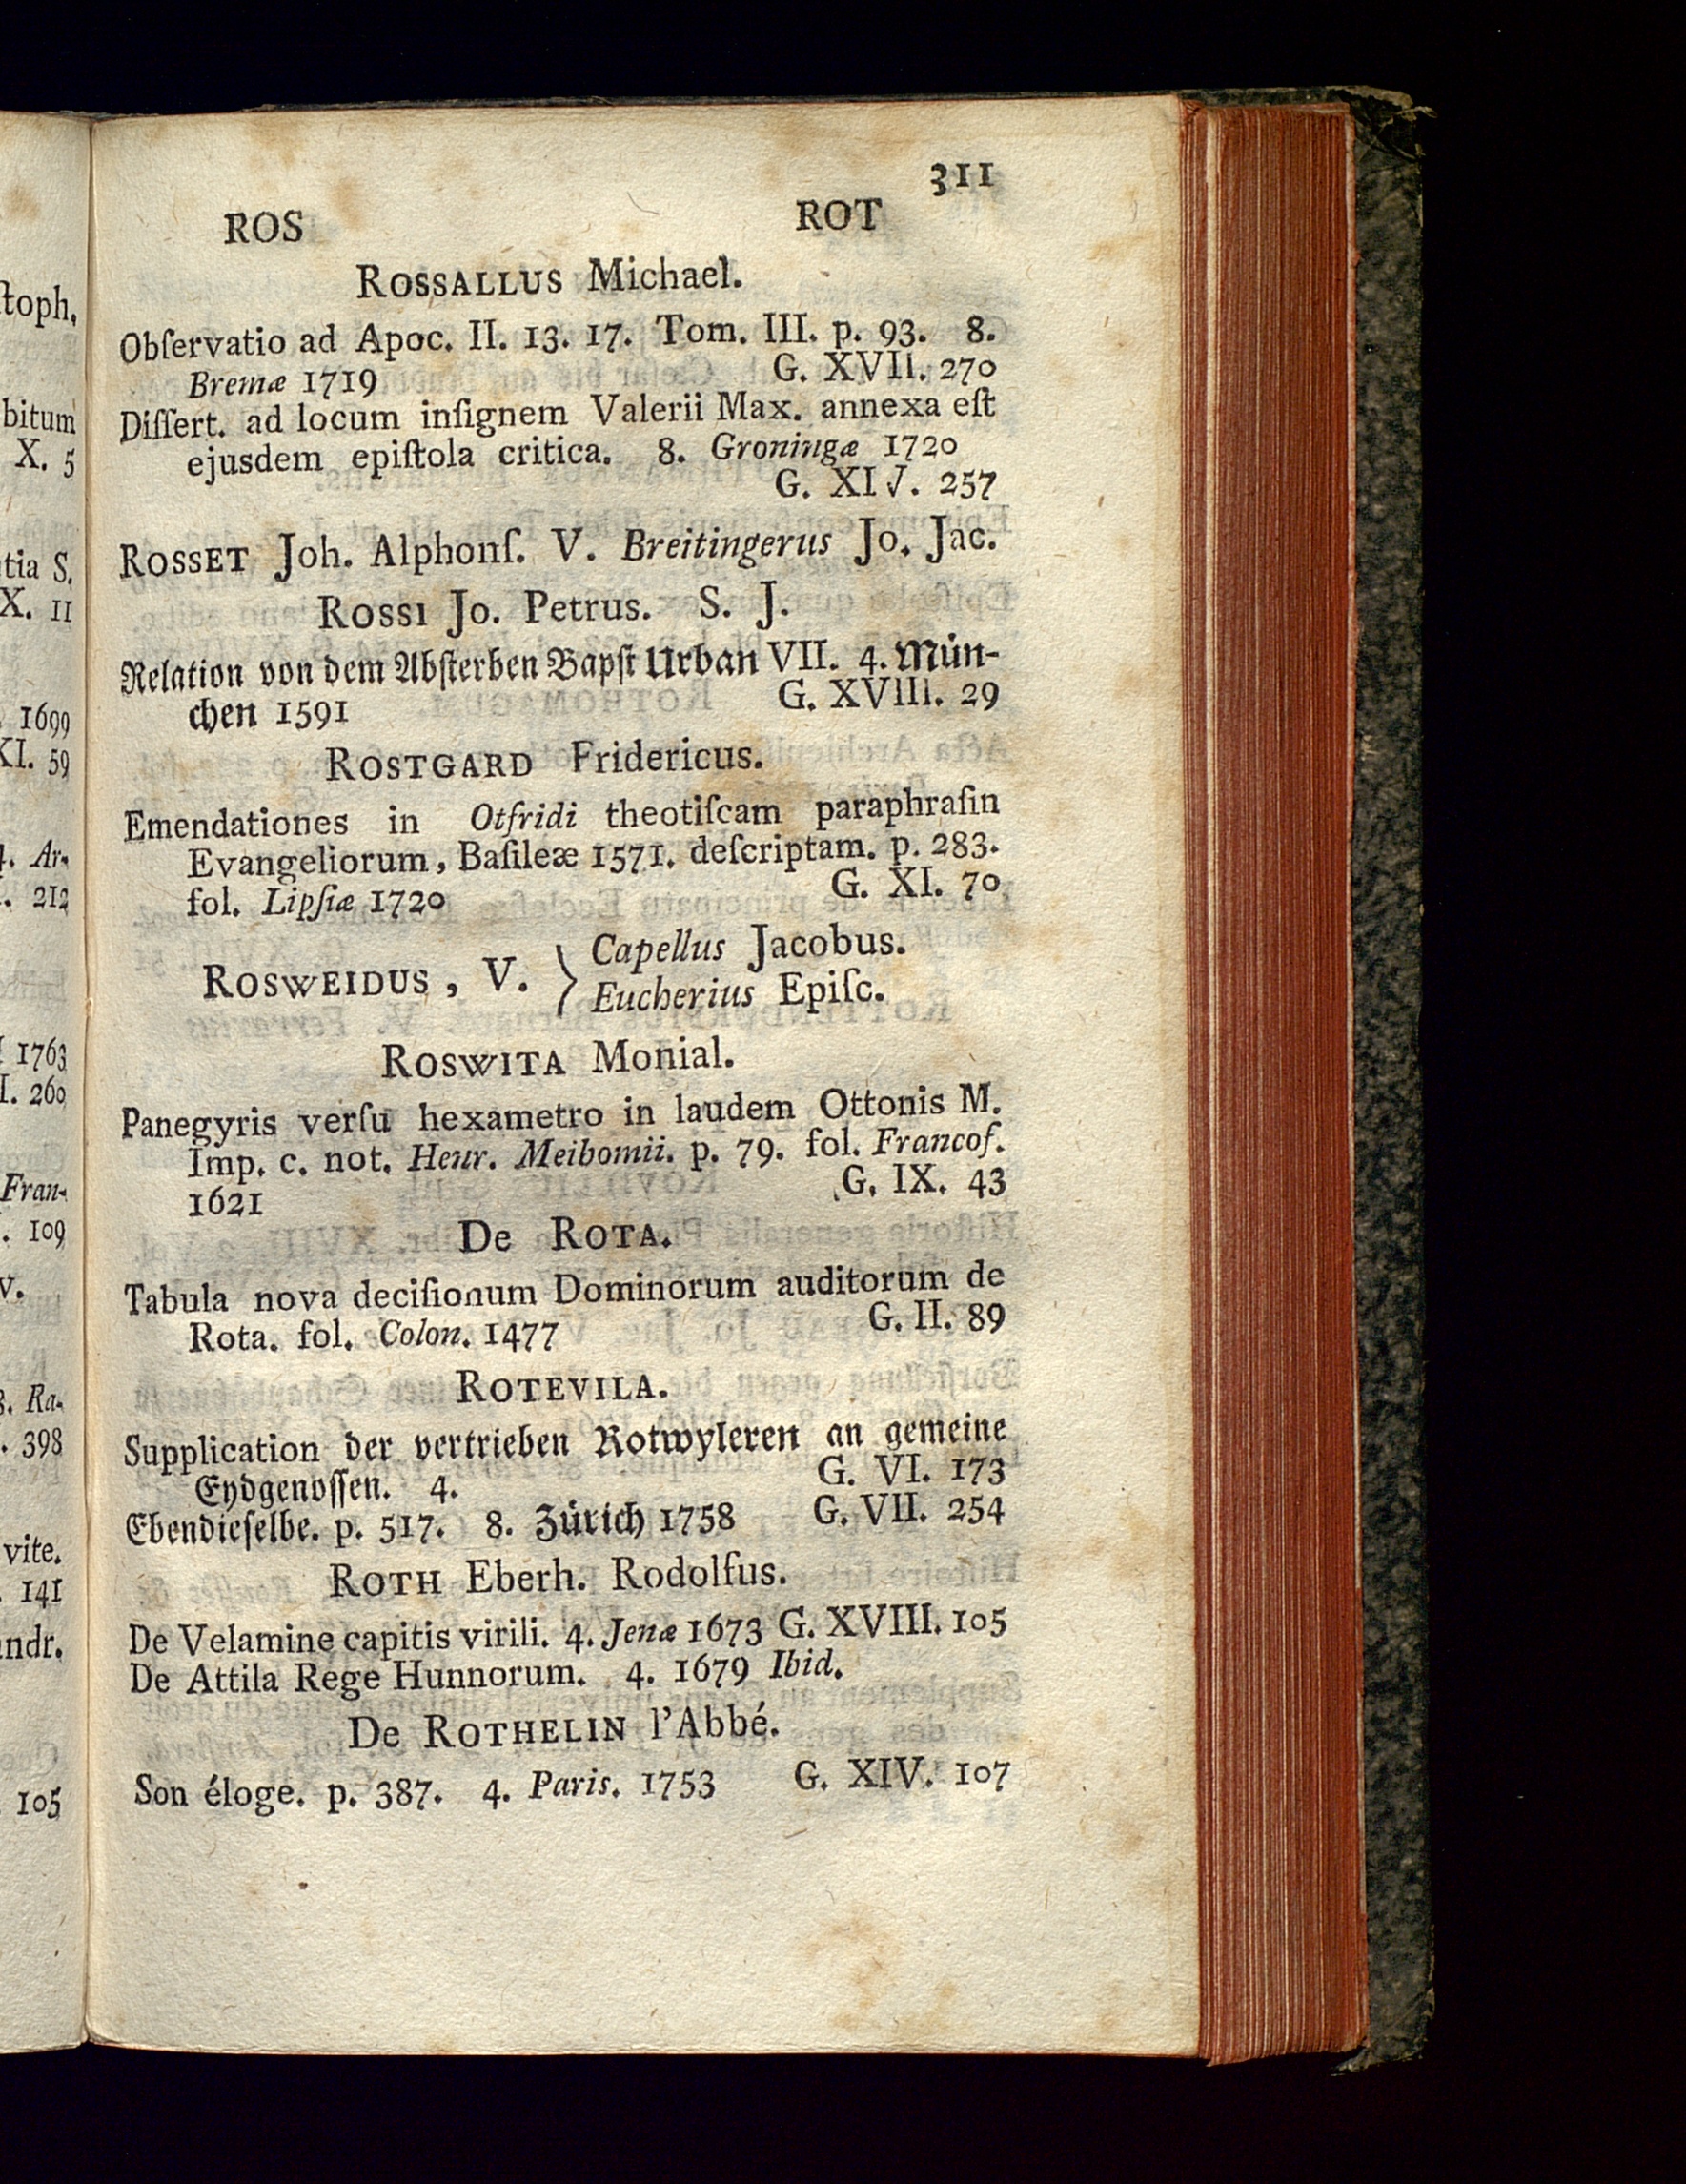 311
ROS ROT
ROSSALLUS Michael.
Obſervatio ad Apoc. II. 13. 17. Tom. III. p. 93. 8.
Bremæ 1719 G. XVII. 270
Diſſert. ad locum inſignem Valerii Max. annexa eſt
ejusdem epiſtola critica. 8. Groningæ 1720
G. XIV. 257
ROSSET Joh. Alphonſ. V. Breitingerus Jo. Jac.
ROSSI Jo. Petrus. S. J.
Relation von dem Abſterben Bapſt Urban VII. 4. Mün-
chen 1591 G. XVIII. 29
ROSTGARD Fridericus.
Emendationes in Otfridi theotiſcam paraphraſin
Evangeliorum, Baſileæ 1571. deſcriptam. p. 283.
fol. Lipſiæ 1720 G. XI. 70
ROSWEIDUS, V. } Capellus Jacobus.
Eucherius Epiſc.
ROSWITA Monial.
Panegyris verſu hexametro in laudem Ottonis M.
Imp. c. not. Henr. Meibomii. p. 79. fol. Francof.
1621 G. IX. 43
De ROTA.
Tabula nova deciſionum Dominorum auditorum de
Rota. fol. Colon. 1477 G. II. 89
ROTEVILA.
Supplication der vertrieben Rotwyleren an gemeine
Eydgenoſſen. 4. G. VI. 173
Ebendieſelbe. p. 517. 8. Zürich 1758 G. VII. 254
ROTH Eberh. Rodolfus.
De Velamine capitis virili. 4. Jenæ 1673 G. XVIII. 105
De Attila Rege Hunnorum. 4. 1679 Ibid.
De ROTHELIN l'Abbé.
Son éloge. p. 387. 4. Paris. 1753 G. XIV. 107
toph,
bitum
X. 5
tia S.
X. 11
1699
XI. 59
4. Ar-
. 212
1763
I. 260
Fran-
. 109
v.
8. Ra-
. 398
vite.
. 141
andr.
105